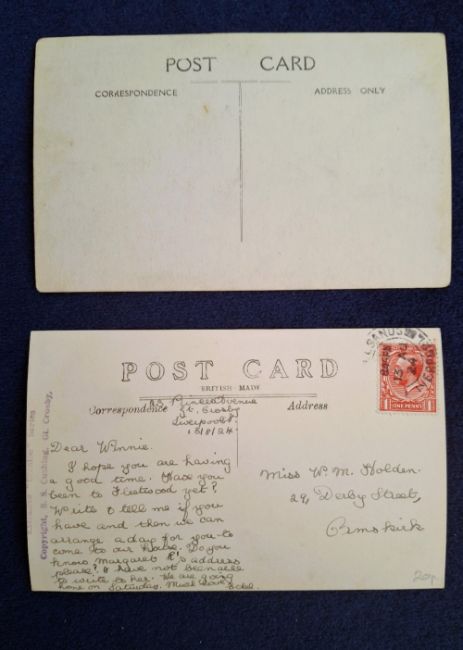 POST CARD
CORRESPONDENCE
ADDRESS ONLY
POST CARD
BRITISH MADE
Correspondence
Address
Avenue
Gt. Crosby
Liverpool
Dear Winnie.
I hope you are having
a good time. Have you
been to Fleetwood yet?
Write & tell me if you
have and then we can
arrange a day for you to
come to our house. Do you
know Margaret R's address
please? I have not been able
to write to her. We are going
home on Saturday. Much love
Miss W. M. Holden.
29, Derby Street,
Ormskirk
Copyright, B.S. Cushing, Gt. Crosby.
ONE PENNY
20p